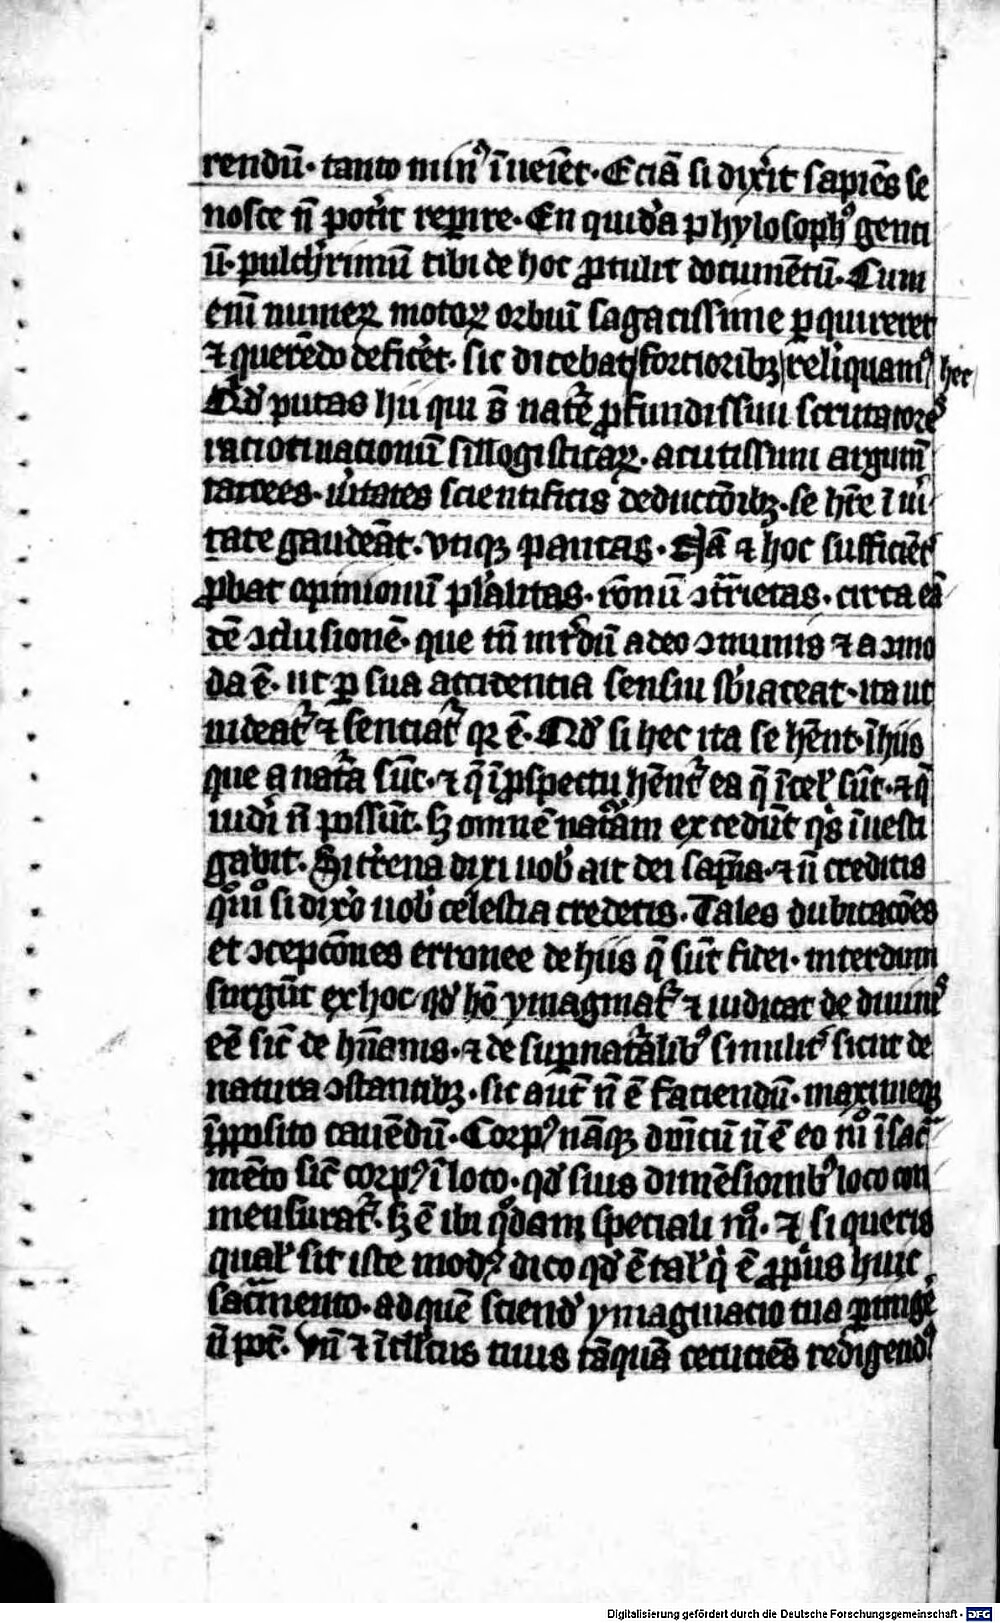 rendū· tanto minꝰ īueiēt· Eciā si dixͥit sapiēs se
nosce n̄ potͥit reꝑire· En quidā phylosophꝰ genti
ū· pulchͥrimū tibi de hoc ꝓtulit documētū· Cum
enī numeꝝ motoꝝ orbiū sagacissime ꝑquireret
⁊ querēdo deficeͤt· sic dicebat fortioribꝫ reliquamꝰ hec
Qd̓ putas hii qui s̄t nat͛e ꝓfundissimi scrutatores
raciotinacionū sillogisticaꝝ· acutissimi argum̄
tatores· ūitates scientificis deductōibꝫ· se hr̄e ī ūi
tate gaudeāt· vtiqꝫ paucas· Nā ⁊ hoc sufficiēt͛
ꝓbat opinionū plͬalitas· rōnū ꝯtͬrietas· circa eā
dē ꝯclusionē· que tn̄ int͛dū adeo ꝯmunis ⁊ acͻmo
da ē· ut ꝑ sua accidencia sensui sb̓iaceat· ita ut
uideat͛ ⁊ senciat͛ qꝛ ē· Qd̓ si hec ita se hn̄t· ī hiis
que a nat͛a sūt· ⁊ q̄ ī ꝓspectu hēnt͛ ea q̄ ī cel̓ sūt· ⁊ q̄
uid͛i n̄ possūt· sꝫ omnē nat͛am excedūt qͥs īuesti
gabit· Si t͛rena dixi uob̓ ait dei sapīa· ⁊ n̄ creditis
qͦmͦ si dixͦo uob̓ celestia credetis· Tales dubitacōes
et ꝯcepcōnes erronee de hiis q̄ sūt fidei· interdum
surgūt ex hoc qd̓ hō ymaginat͛ ⁊ iudicat de diuinꝭ
eē sic̄ de hūanis· ⁊ de suꝑnat͛alibꝰ similit͛ sicut de
natura ꝯstantibꝫ· sic aut̄ n̄ ē faciendū· maximeqꝫ
ī ꝓposito cauēdū· Corpꝰ nāqꝫ dn̄icū n̄ ē eo mͦ ī sac͛
mēto sic̄ corpꝰ ī loco· qd̓ suis dimēsionibꝰ loco con
mensurat͛· sꝫ ē ibi qͦdam speciali mͦ· ⁊ si queris
qual̓ sit iste modꝰ dico qd̓ ē tal̓ qͥ ē ꝓpͥus huic
sac͛mento· ad quē sciend̓ ymaginacio tua ꝑtingē
n̄ pōt· Vn̄ ⁊ ītll̓cus tuus tāquā cecuciēs redigendꝰ
Digitalisierung gefördert durch die Deutsche Forschungsgemeinschaft - DFG